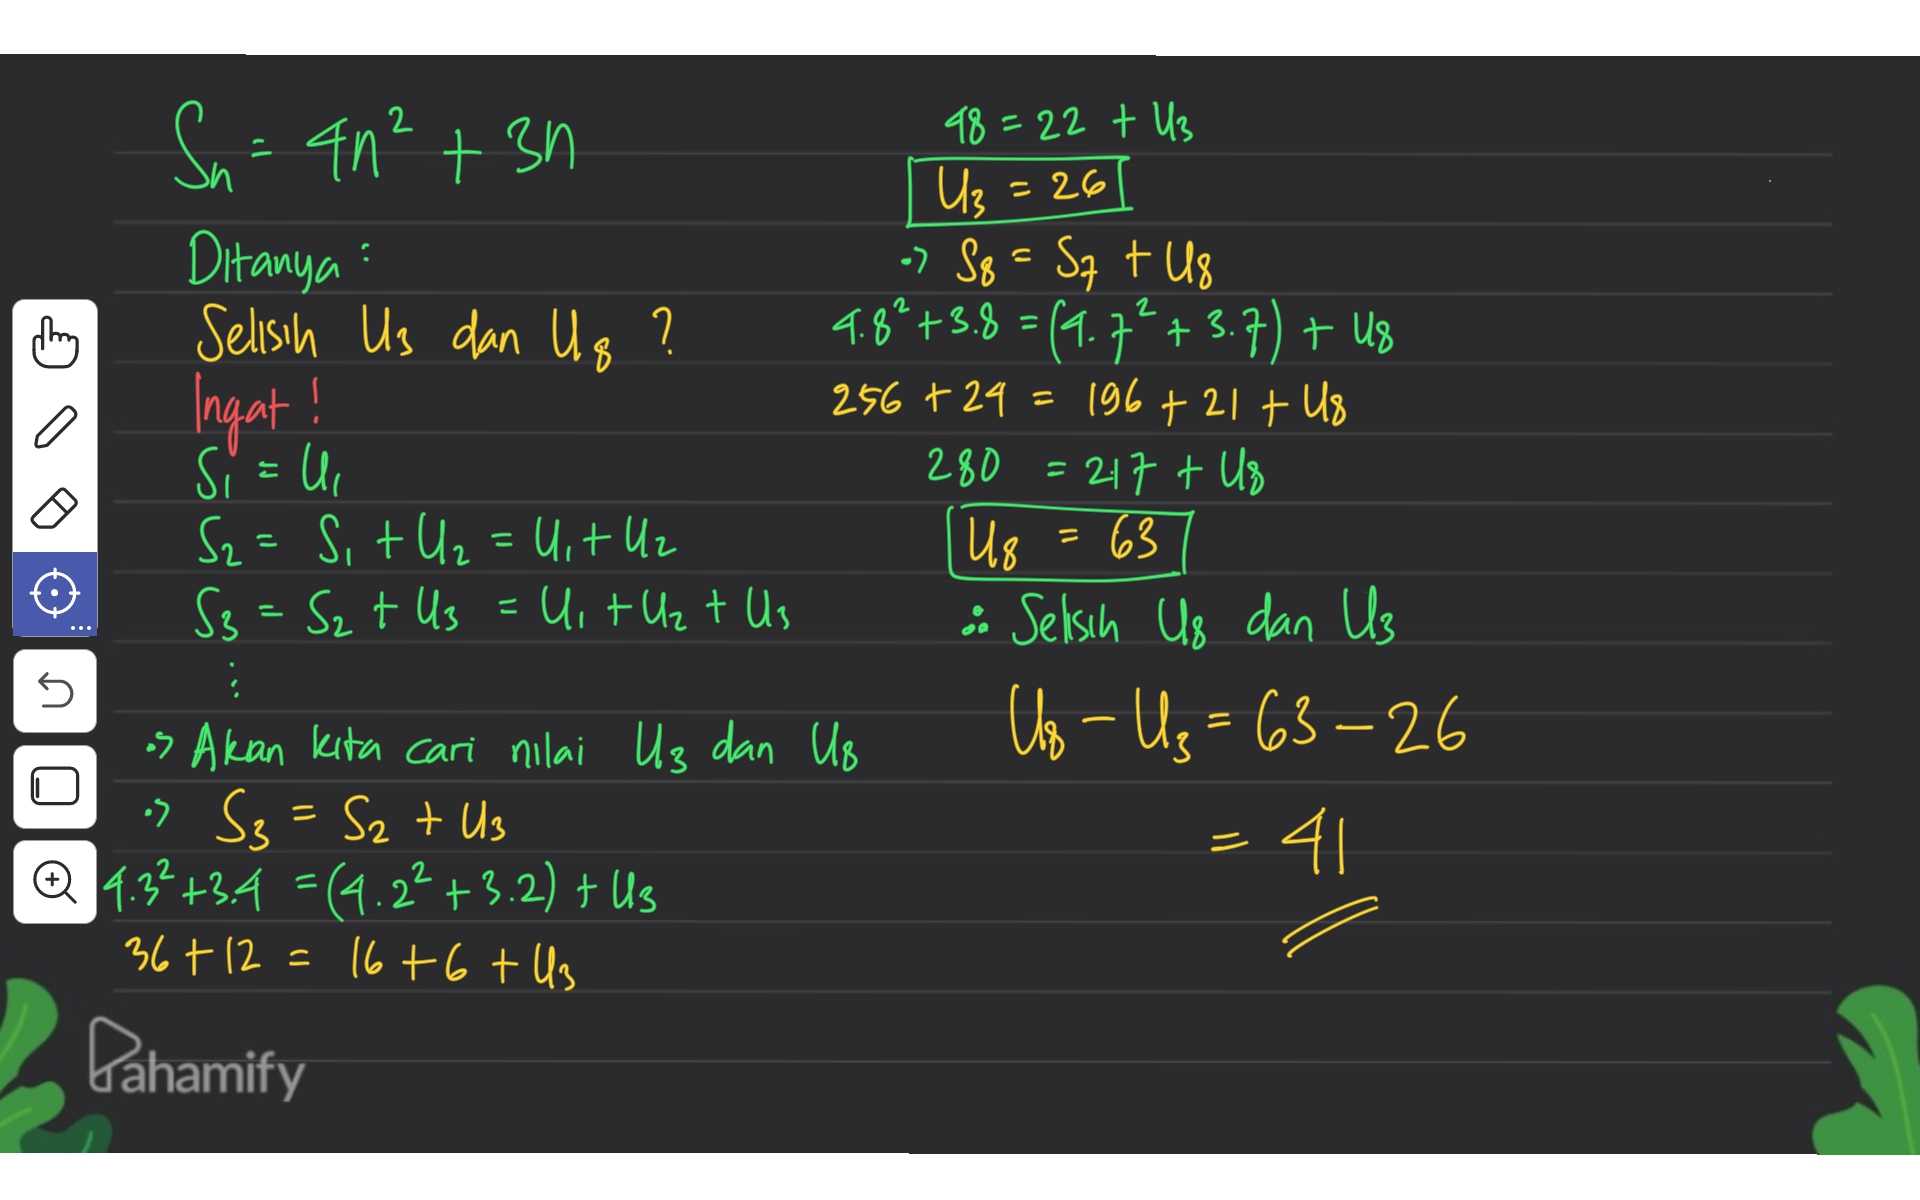 Sn = 4n² + 3n
Ditanya :
Selisih U₃ dan U₈ ?
Ingat !
S₁ = U₁
S₂ = S₁ + U₂ = U₁ + U₂
S₃ = S₂ + U₃ = U₁ + U₂ + U₃
⋮
•> Akan kita cari nilai U₃ dan U₈
•> S₃ = S₂ + U₃
4.3² + 3.4 = (4.2² + 3.2) + U₃
36 + 12 = 16 + 6 + U₃
48 = 22 + U₃
U₃ = 26
•> S₈ = S₇ + U₈
4.8² + 3.8 = (4.7² + 3.7) + U₈
256 + 24 = 196 + 21 + U₈
280 = 217 + U₈
U₈ = 63
∴ Selisih U₈ dan U₃
U₈ − U₃ = 63 − 26
= 41
Pahamify